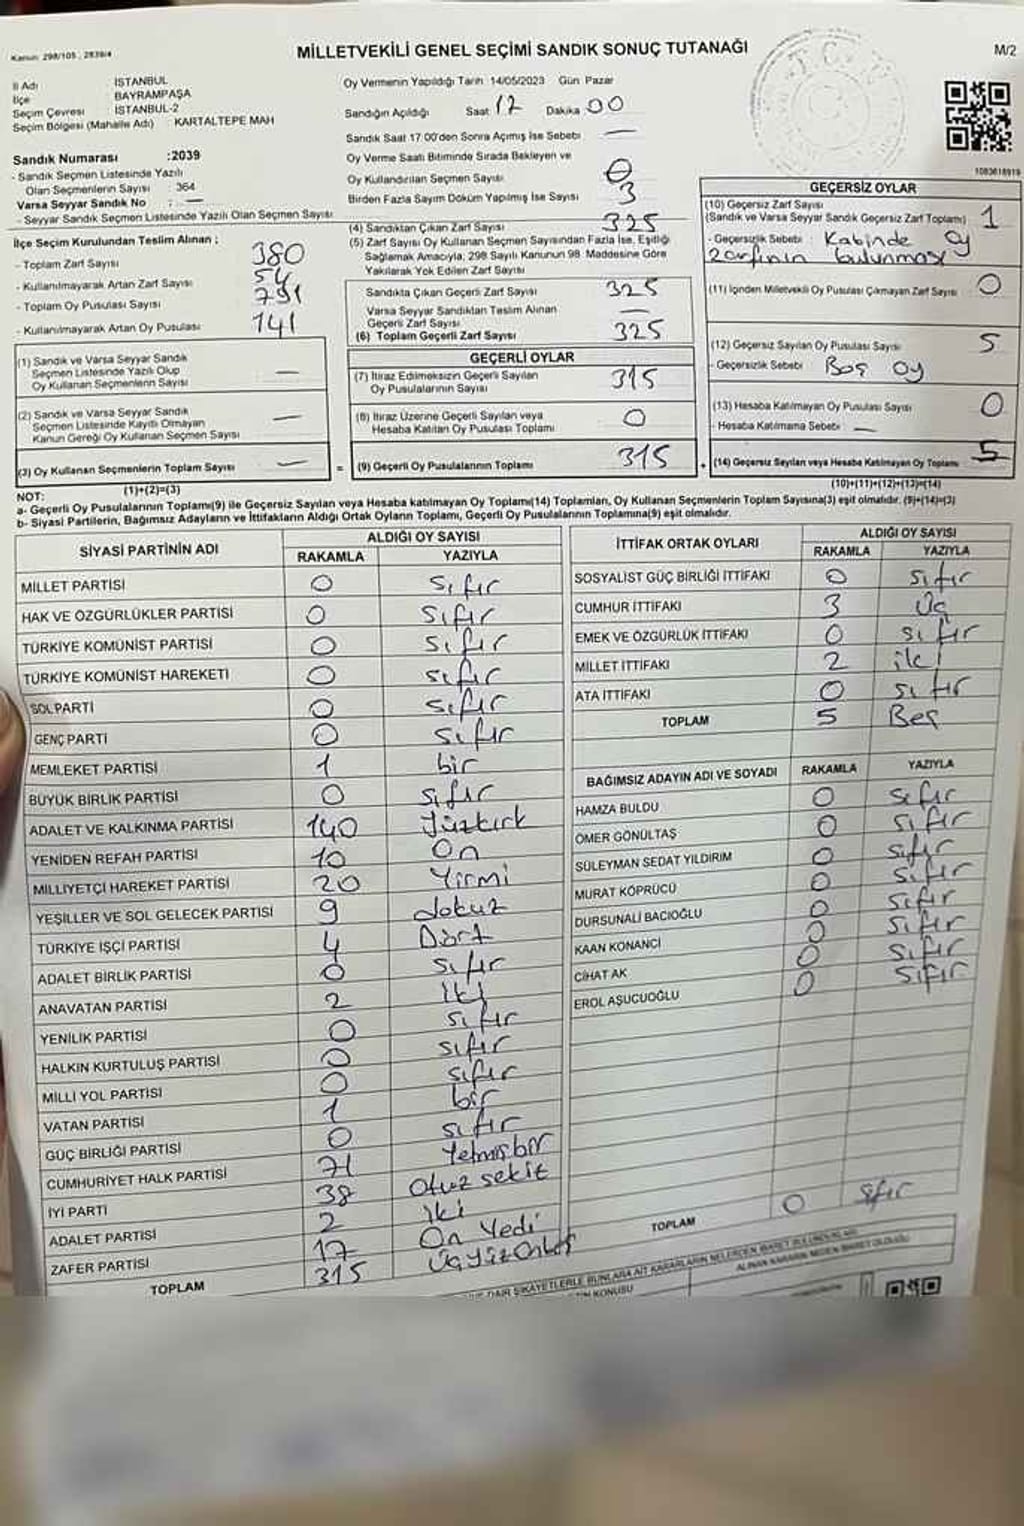 Kanun: 298/105, 2839/4
MİLLETVEKİLİ GENEL SEÇİMİ SANDIK SONUÇ TUTANAĞI
M/2
İl Adı İSTANBUL
İlçe BAYRAMPAŞA
Seçim Çevresi İSTANBUL-2
Seçim Bölgesi (Mahalle Adı) KARTALTEPE MAH
Sandık Numarası :2039
- Sandık Seçmen Listesinde Yazılı
Olan Seçmenlerin Sayısı : 364
Varsa Seyyar Sandık No : —
- Seyyar Sandık Seçmen Listesinde Yazılı Olan Seçmen Sayısı
İlçe Seçim Kurulundan Teslim Alınan ;
- Toplam Zarf Sayısı 380
- Kullanılmayarak Artan Zarf Sayısı 54
- Toplam Oy Pusulası Sayısı
- Kullanılmayarak Artan Oy Pusulası 141
(1) Sandık ve Varsa Seyyar Sandık
Seçmen Listesinde Yazılı Olup
Oy Kullanan Seçmenlerin Sayısı —
(2) Sandık ve Varsa Seyyar Sandık
Seçmen Listesinde Kayıtlı Olmayan
Kanun Gereği Oy Kullanan Seçmen Sayısı —
(3) Oy Kullanan Seçmenlerin Toplam Sayısı —
(1)+(2)=(3)
Oy Vermenin Yapıldığı Tarih 14/05/2023 Gün Pazar
Sandığın Açıldığı Saat 17 Dakika 00
Sandık Saat 17:00'den Sonra Açımış İse Sebebi —
Oy Verme Saati Bitiminde Sırada Bekleyen ve
Oy Kullandırılan Seçmen Sayısı
Birden Fazla Sayım Döküm Yapılmış İse Sayısı 3
(4) Sandıktan Çıkan Zarf Sayısı 325
(5) Zarf Sayısı Oy Kullanan Seçmen Sayısından Fazla İse, Eşitliği
Sağlamak Amacıyla, 298 Sayılı Kanunun 98. Maddesine Göre
Yakılarak Yok Edilen Zarf Sayısı
Sandıkta Çıkan Geçerli Zarf Sayısı 325
Varsa Seyyar Sandıktan Teslim Alınan
Geçerli Zarf Sayısı —
(6) Toplam Geçerli Zarf Sayısı 325
GEÇERLİ OYLAR
(7) İtiraz Edilmeksizin Geçerli Sayılan
Oy Pusulalarının Sayısı 315
(8) İtiraz Üzerine Geçerli Sayılan veya
Hesaba Katılan Oy Pusulası Toplamı 0
= (9) Geçerli Oy Pusulalarının Toplamı 315
1083618919
GEÇERSİZ OYLAR
(10) Geçersiz Zarf Sayısı
(Sandık ve Varsa Seyyar Sandık Geçersiz Zarf Toplamı) 1
- Geçersizlik Sebebi : Kabinde oy
zarfının bulunması
(11) İçinden Milletvekili Oy Pusulası Çıkmayan Zarf Sayısı 0
(12) Geçersiz Sayılan Oy Pusulası Sayısı 5
- Geçersizlik Sebebi Boş oy
(13) Hesaba Katılmayan Oy Pusulası Sayısı 0
- Hesaba Katılmama Sebebi —
+ (14) Geçersiz Sayılan veya Hesaba Katılmayan Oy Toplamı 5
(10)+(11)+(12)+(13)=(14)
NOT:
a- Geçerli Oy Pusulalarının Toplamı(9) ile Geçersiz Sayılan veya Hesaba katılmayan Oy Toplamı(14) Toplamları, Oy Kullanan Seçmenlerin Toplam Sayısına(3) eşit olmalıdır. (9)+(14)=(3)
b- Siyasi Partilerin, Bağımsız Adayların ve İttifakların Aldığı Ortak Oyların Toplamı, Geçerli Oy Pusulalarının Toplamına(9) eşit olmalıdır.
SİYASİ PARTİNİN ADI ALDIĞI OY SAYISI
RAKAMLA YAZIYLA
MİLLET PARTİSİ 0 sıfır
HAK VE ÖZGÜRLÜKLER PARTİSİ 0 sıfır
TÜRKİYE KOMÜNİST PARTİSİ 0 sıfır
TÜRKİYE KOMÜNİST HAREKETİ 0 sıfır
SOL PARTİ 0 sıfır
GENÇ PARTİ 0 sıfır
MEMLEKET PARTİSİ 1 bir
BÜYÜK BİRLİK PARTİSİ 0 sıfır
ADALET VE KALKINMA PARTİSİ 140 Yüzkırk
YENİDEN REFAH PARTİSİ 10 On
MİLLİYETÇİ HAREKET PARTİSİ 20 Yirmi
YEŞİLLER VE SOL GELECEK PARTİSİ 9 dokuz
TÜRKİYE İŞÇİ PARTİSİ 4 Dört
ADALET BİRLİK PARTİSİ 0 sıfır
ANAVATAN PARTİSİ 2 iki
YENİLİK PARTİSİ 0 sıfır
HALKIN KURTULUŞ PARTİSİ 0 sıfır
MİLLİ YOL PARTİSİ 0 sıfır
VATAN PARTİSİ 1 bir
GÜÇ BİRLİĞİ PARTİSİ 0 sıfır
CUMHURİYET HALK PARTİSİ 71 Yetmişbir
İYİ PARTİ 38 Otuz sekiz
ADALET PARTİSİ 2 iki
ZAFER PARTİSİ 17 On Yedi
TOPLAM 315 Üçyüzonbeş
İTTİFAK ORTAK OYLARI ALDIĞI OY SAYISI
RAKAMLA YAZIYLA
SOSYALİST GÜÇ BİRLİĞİ İTTİFAKI 0 sıfır
CUMHUR İTTİFAKI 3 Üç
EMEK VE ÖZGÜRLÜK İTTİFAKI 0 sıfır
MİLLET İTTİFAKI 2 iki
ATA İTTİFAKI 0 sıfır
TOPLAM 5 Beş
BAĞIMSIZ ADAYIN ADI VE SOYADI RAKAMLA YAZIYLA
HAMZA BULDU 0 sıfır
ÖMER GÖNÜLTAŞ 0 sıfır
SÜLEYMAN SEDAT YILDIRIM 0 sıfır
MURAT KÖPRÜCÜ 0 sıfır
DURSUNALİ BACIOĞLU 0 sıfır
KAAN KONANCİ 0 sıfır
CİHAT AK 0 sıfır
EROL AŞUCUOĞLU 0 sıfır
TOPLAM 0 sıfır
DAİR ŞİKAYETLERLE BUNLARA AİT KARARLARIN NELERDEN İBARET BULUNDUKLARI
KONUSU ALINAN KARARIN NEDEN İBARET OLDUĞU